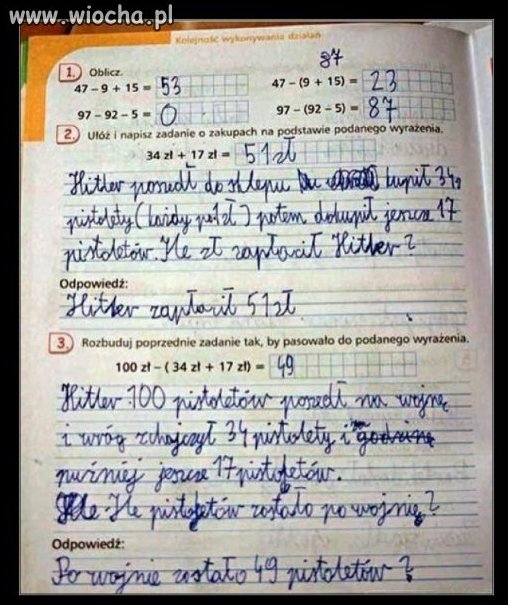 www.wiocha.pl
Kolejność wykonywania działań
37
1. Oblicz.
47 – 9 + 15 = 53 47 – (9 + 15) = 23
97 – 92 – 5 = 0 97 – (92 – 5) = 87
2. Ułóż i napisz zadanie o zakupach na podstawie podanego wyrażenia.
34 zł + 17 zł = 51 zł
Hitler poszedł do sklepu kupił 34
pistolety (każdy po 1 zł) potem dokupił jeszcze 17
pistoletów. Ile zł zapłacił Hitler?
Odpowiedź:
Hitler zapłacił 51 zł.
3. Rozbuduj poprzednie zadanie tak, by pasowało do podanego wyrażenia.
100 zł – ( 34 zł + 17 zł) = 49
Hitler 100 pistoletów poszedł na wojnę
i wróg zhajczył 34 pistolety i
puźniej jeszcze 17 pistoletów.
Ile pistoletów zostało po wojnie?
Odpowiedź:
Po wojnie zostało 49 pistoletów?